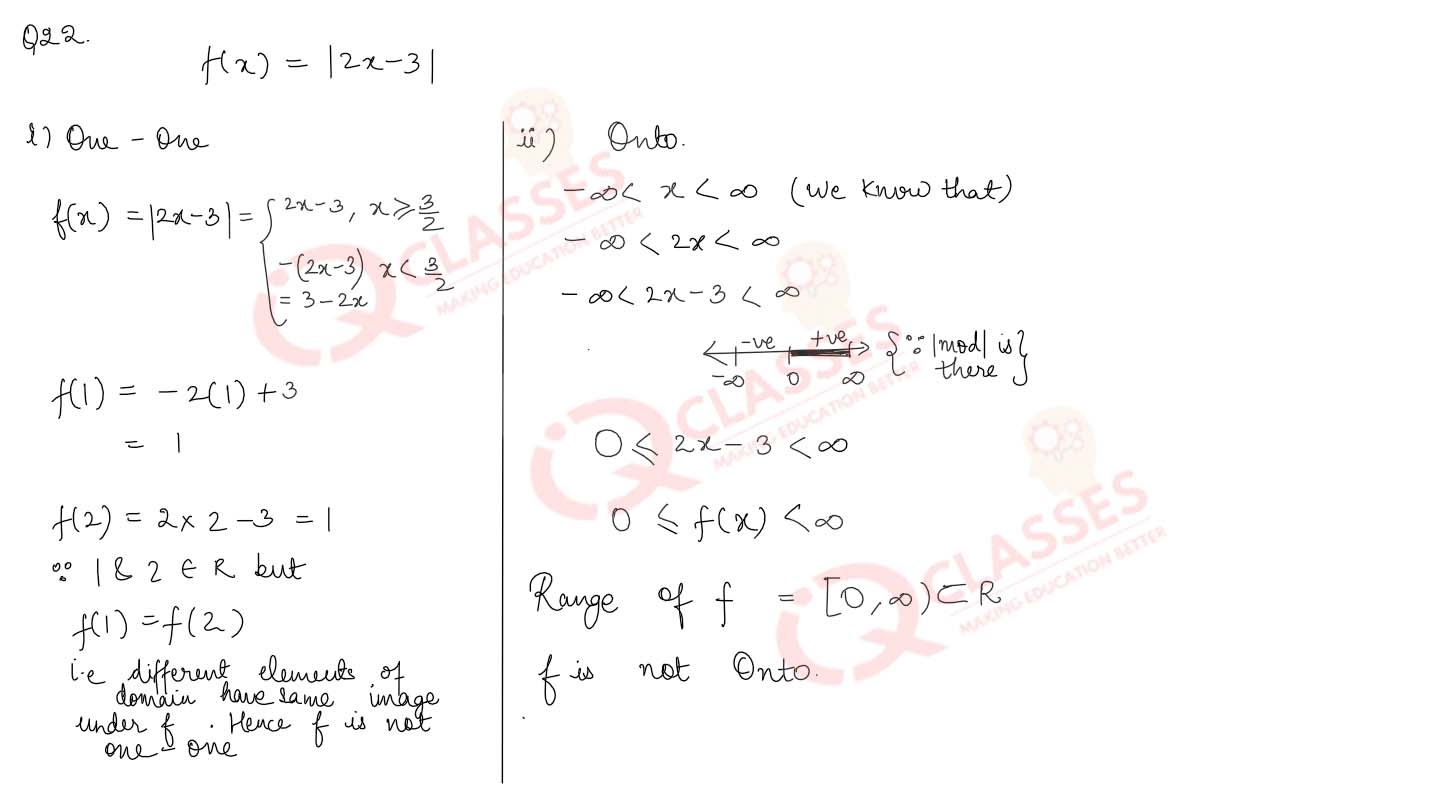 Q22.
f(x) = |2x-3|
i) One - One
f(x) = |2x-3| = { 2x-3, x ≥ 3/2
-(2x-3) x < 3/2
= 3-2x
f(1) = -2(1) + 3
= 1
f(2) = 2 x 2 - 3 = 1
∵ 1 & 2 ∈ R but
f(1) = f(2)
i.e different elements of
domain have same image
under f . Hence f is not
one - one
ii) Onto.
-∞ < x < ∞ (we know that)
-∞ < 2x < ∞
-∞ < 2x - 3 < ∞
-ve +ve {∵ |mod| is
-∞ 0 ∞ there}
0 ≤ 2x - 3 < ∞
0 ≤ f(x) < ∞
Range of f = [0, ∞) ⊂ R
f is not Onto.
IQ CLASSES
MAKING EDUCATION BETTER
IQ CLASSES
MAKING EDUCATION BETTER
IQ CLASSES
MAKING EDUCATION BETTER